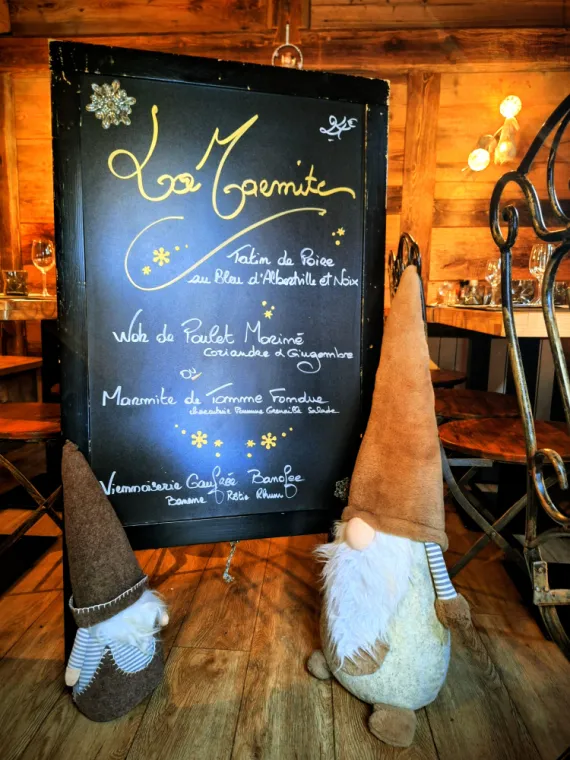 La Marmite
Tatin de Poire
au Bleu d'Albertville et Noix
Wok de Poulet Mariné
Coriandre & Gingembre
ou
Marmite de Tomme Fondue
Charcuterie Pomme Grenaille Salade
Viennoiserie Gaufrée Banofee
Banane Rôtie Rhum